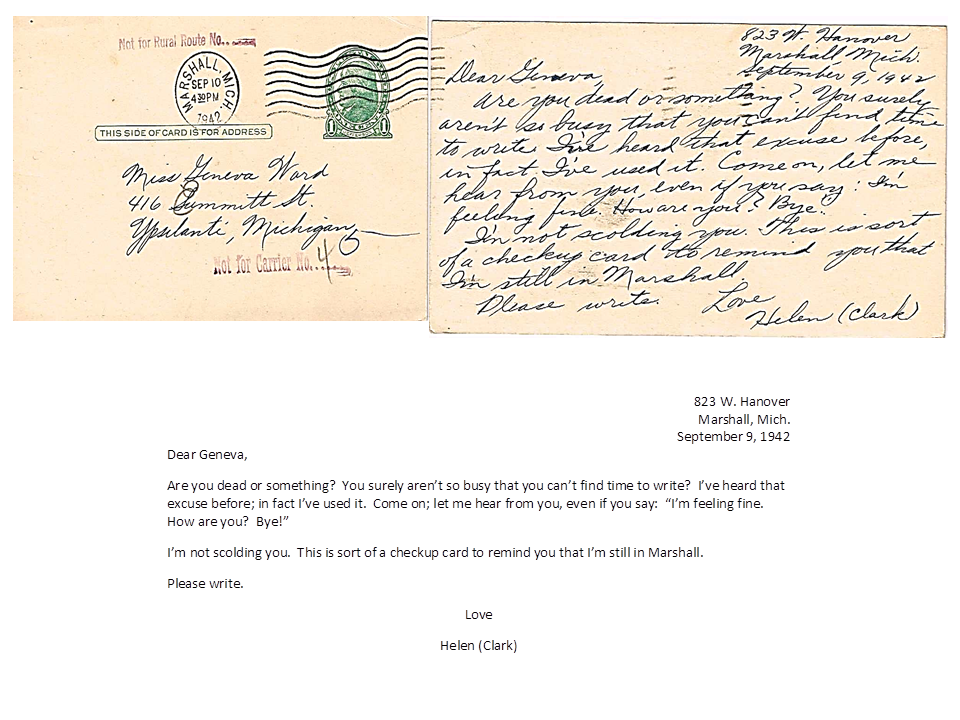 Not for Rural Route No.
MARSHALL, MICH.
SEP 10
4 30 PM
1942
1 1
THIS SIDE OF CARD IS FOR ADDRESS
Miss Geneva Ward
416 Summitt St.
Ypsilanti, Michigan
Not for Carrier No. 4
823 W. Hanover
Marshall Mich.
September 9, 1942
Dear Geneva,
Are you dead or something? You surely
aren't so busy that you can't find time
to write. I've heard that excuse before,
in fact I've used it. Come on, let me
hear from you, even if you say: I'm
feeling fine. How are you? Bye!
I'm not scolding you. This is sort
of a checkup card to remind you that
I'm still in Marshall.
Please write.
Love
Helen (Clark)
823 W. Hanover
Marshall, Mich.
September 9, 1942
Dear Geneva,
Are you dead or something?  You surely aren’t so busy that you can’t find time to write?  I’ve heard that
excuse before; in fact I’ve used it.  Come on; let me hear from you, even if you say:  “I’m feeling fine.
How are you?  Bye!”
I’m not scolding you.  This is sort of a checkup card to remind you that I’m still in Marshall.
Please write.
Love
Helen (Clark)